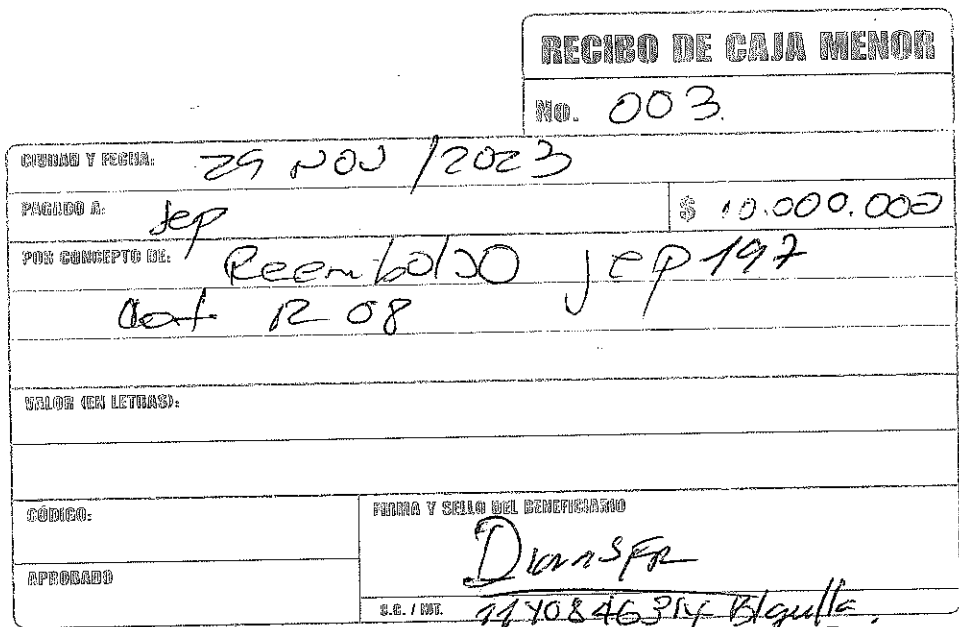 RECIBO DE CAJA MENOR
No. 003.
CIUDAD Y FECHA: 29 NOV / 2023
PAGADO A: Jep $ 10.000.000
POR CONCEPTO DE: Reembolso jep 197
R 08
VALOR (EN LETRAS):
CÓDIGO: FIRMA Y SELLO DEL BENEFICIARIO
APROBADO
C.C. / NIT. B/quilla.